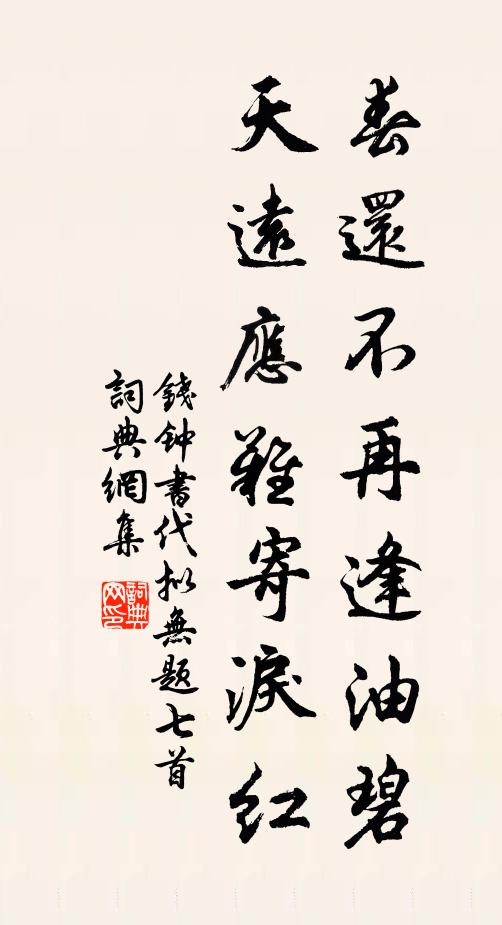 春還不再逢油碧
天遠應難寄淚紅
錢鍾書代拟無題七首
詞典網集
詞典网印